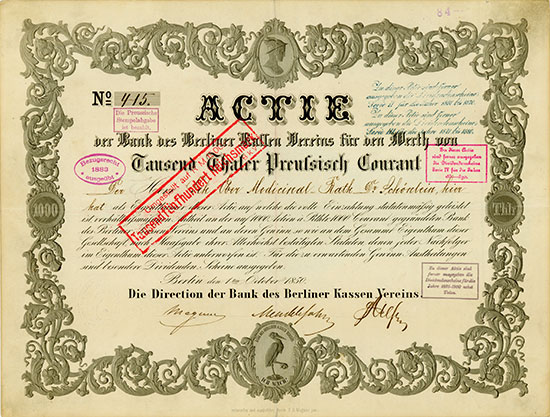 84
No 415.
ACTIE
der Bank des Berliner Kassen Vereins für den Werth von
Tausend Thaler Preussisch Courant
Der Ober Medicinal Rath Dr. Schönlein, hier
hat als Actie, auf welche die volle Einzahlung statutenmäßig geleistet
ist, Antheil an der auf 1000 Actien à Rthlr 1000 Courant gegründeten Bank
des Berliner Kassen Vereins und an deren Gewinn so wie an dem Gesammt Eigenthum dieser
Gesellschaft nach Maassgabe ihrer Allerhöchst bestätigten Statuten, denen jeder Nachfolger
im Eigenthum dieser Actie unterworfen ist. Für die zu erwartenden Gewinn Austheilungen
sind besondere Dividenden Scheine ausgegeben
Berlin den 1ten October 1850.
Die Direction der Bank des Berliner Kassen Vereins.
Magnus Mendelssohn
1000
Thlr
Die Preussische
Stempelabgabe
ist bezahlt.
Bezugsrecht
1883
ausgeübt
Umgestellt auf Mark
Tausendfünfhundert Reichsmark
Zu dieser Actie sind ferner
ausgegeben die Dividendenscheine
Zu dieser Actie sind ferner
ausgegeben die Dividendenscheine
Zu dieser Actie
sind ferner ausgegeben
die Dividendenscheine
Serie IV für die Jahre
Zu dieser Actie sind
ferner ausgegeben die
Dividendenscheine für die
Jahre 1891-1900 nebst
Talon.